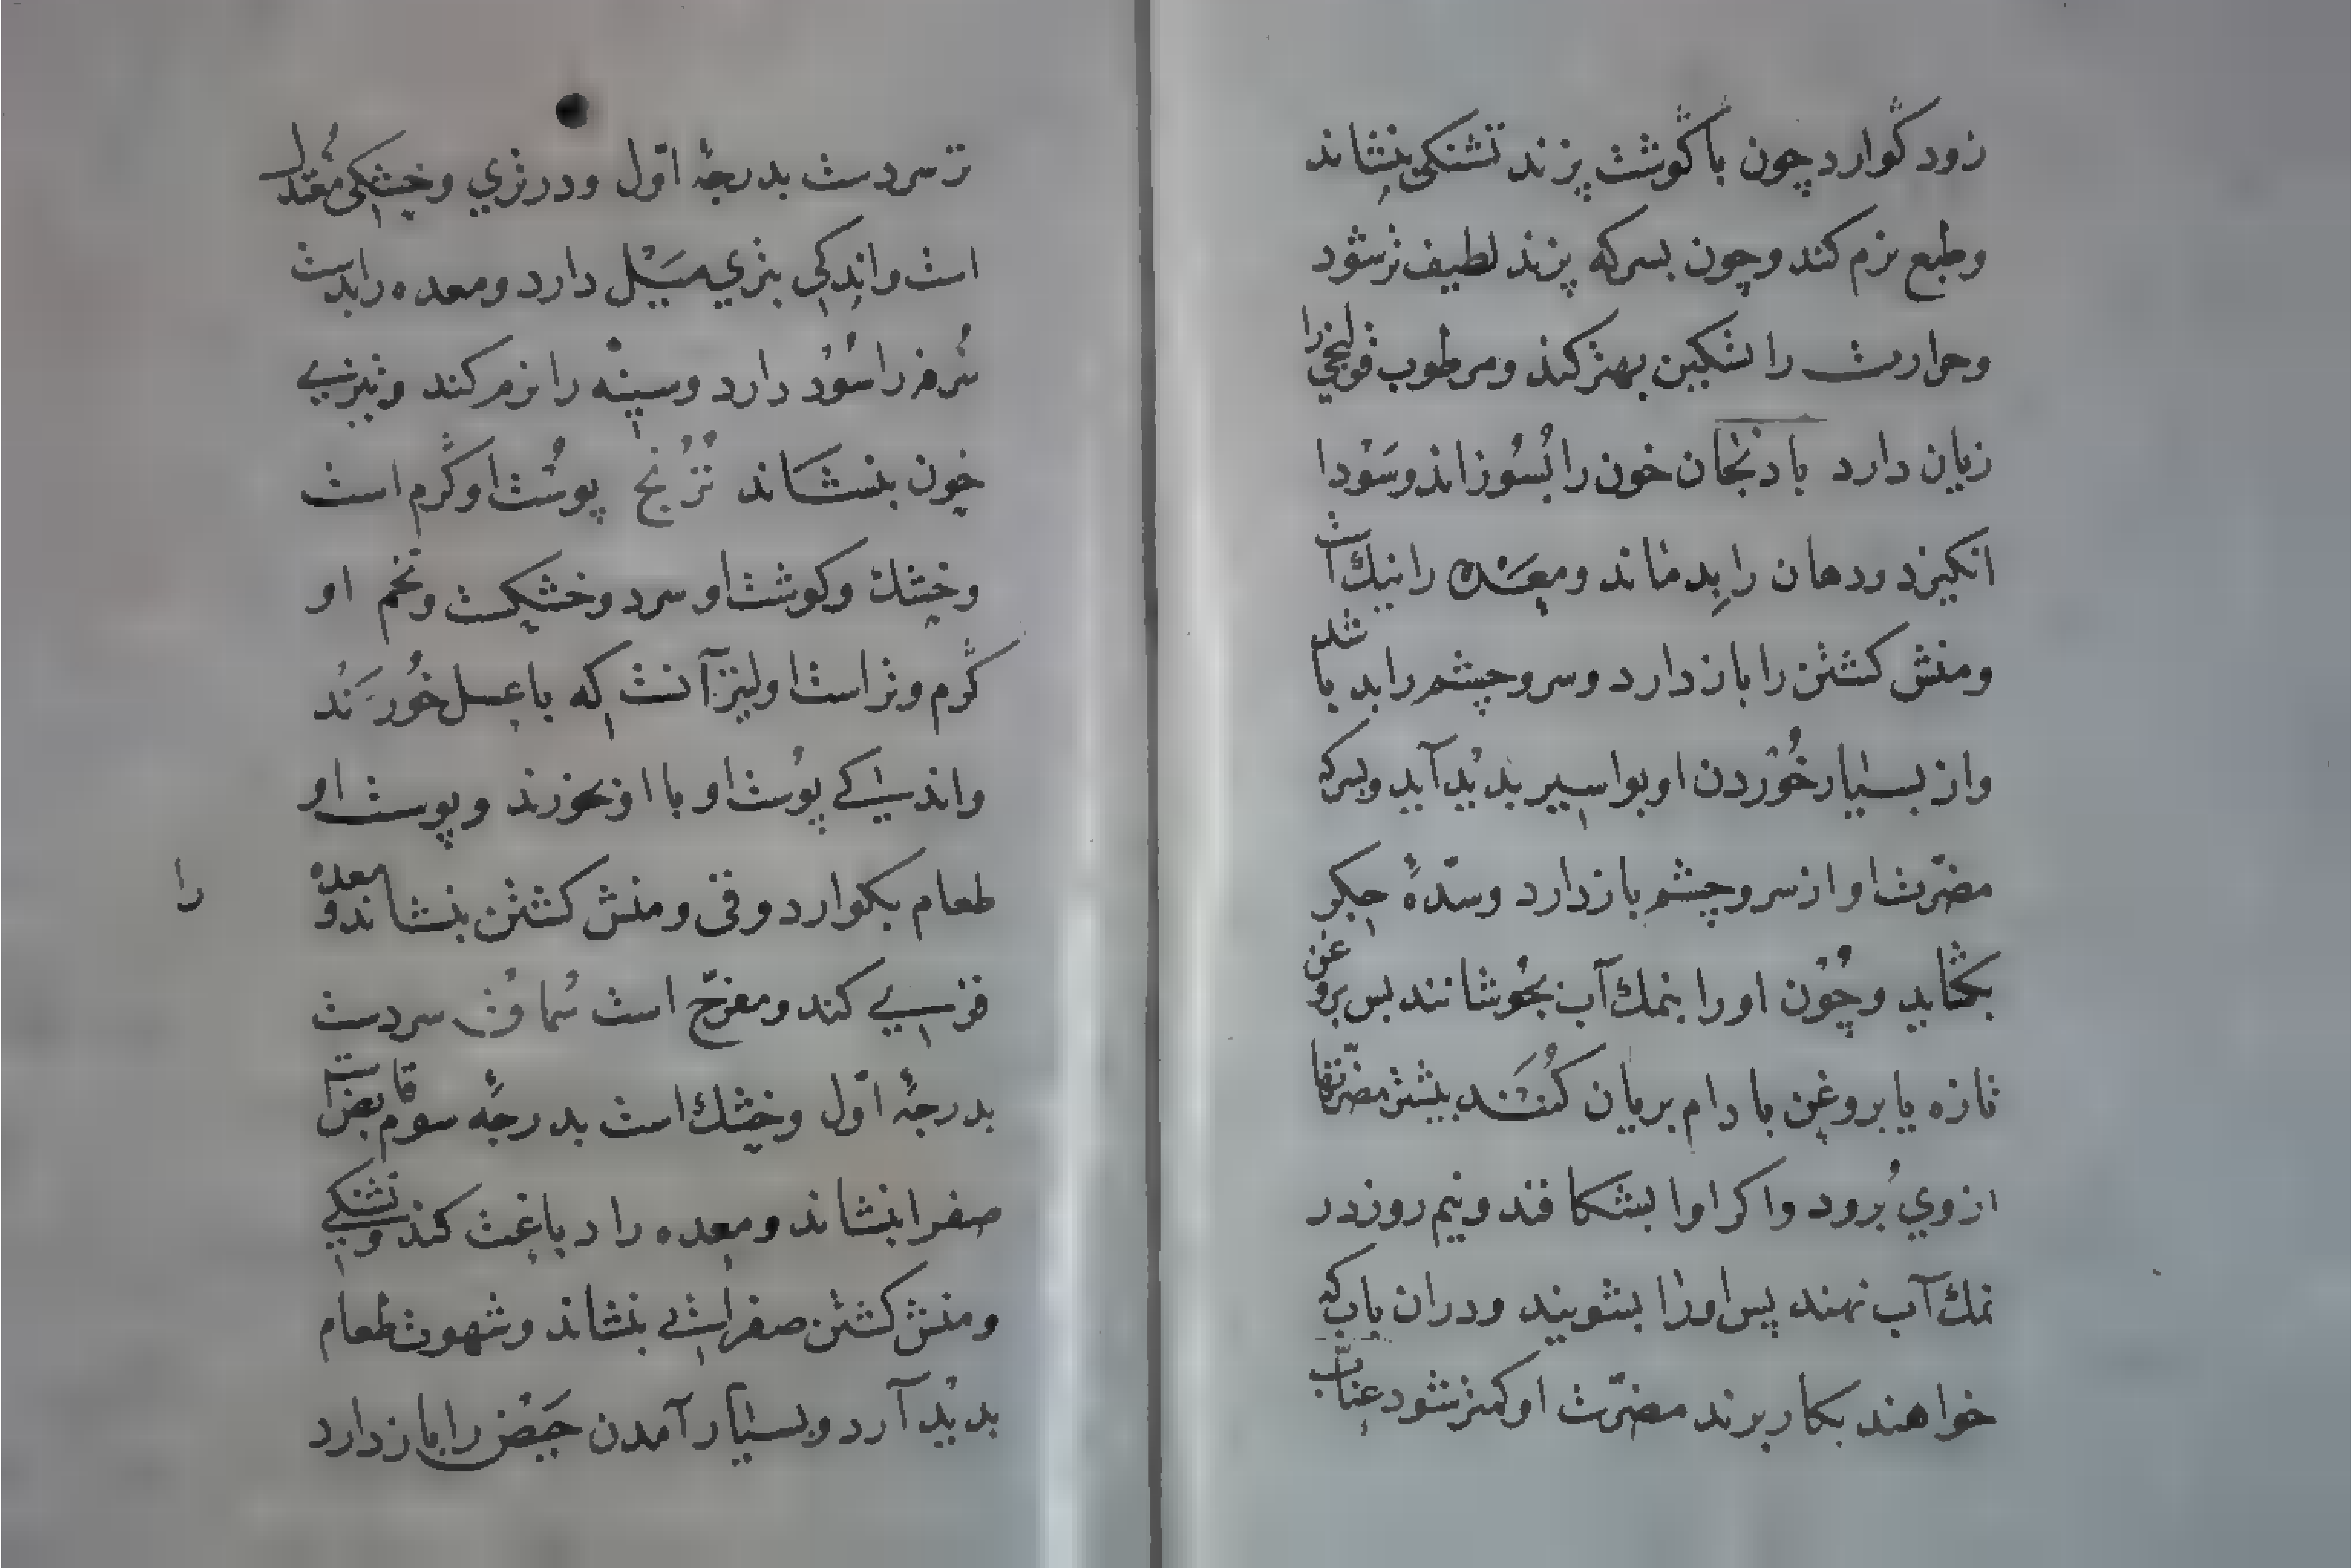 زود گوارد چون با گوشت پزند تشنکی بنشاند
وطبع نرم کند وچون بسرکه پزند لطیف ترشود
وحرارت را تسکین بهترکند ومرطوب قولنجی را
زیان دارد بادنجان خون را بسُوزاند وسَودا
انکیزد ودهان را بدماند ومعده را نیک است
ومنش کشتن را بازدارد وسروچشم را بد باشد
واز بسیار خُوردن او بواسیر پدید آید وبسرکه
مضرّت او ازسر وچشم بازدارد وسدّهٔ جکر
بکشاید وچُون اورا بنمک آب بجُوشانند پس بروغن
تازه یا بروغن بادام بریان کُنَند بیشتر مضرّتها
ازوی بُرود واکر اورا بشکافند ونیم روز در
نمک آب نهند پس اورا بشویند ودران باب که
خواهند بکار برند مضرّت اوکمتر شود عنّاب
تر سردست بدرجهٔ اوّل ودرتری وخشکی معتدل
است واندکی بتری میْل دارد ومعده را بدست
سُرفه را سُود دارد وسینه را نرم کند وتیزیی
خون بنشاند تُرُنج پوست او گرم است
وخشک وکوشت او سرد وخشکست وتخم او
گرم وتر است اولیتر آنست که با عسل خُورَند
واندکی پوست او با او بخورند وپوست او
طعام بکوارد وقی ومنش کشتن بنشاند و معده را
قوی کند ومفرّح است سُماق سردست
بدرجهٔ اوّل وخشک است بدرجهٔ سوم قابض است
صفرا بنشاند ومعده را دباغت کند وتشنکی
ومنش کشتن صفرایی بنشاند وشهوت طعام
پدید آرد وبسیار آمدن حیض را بازدارد